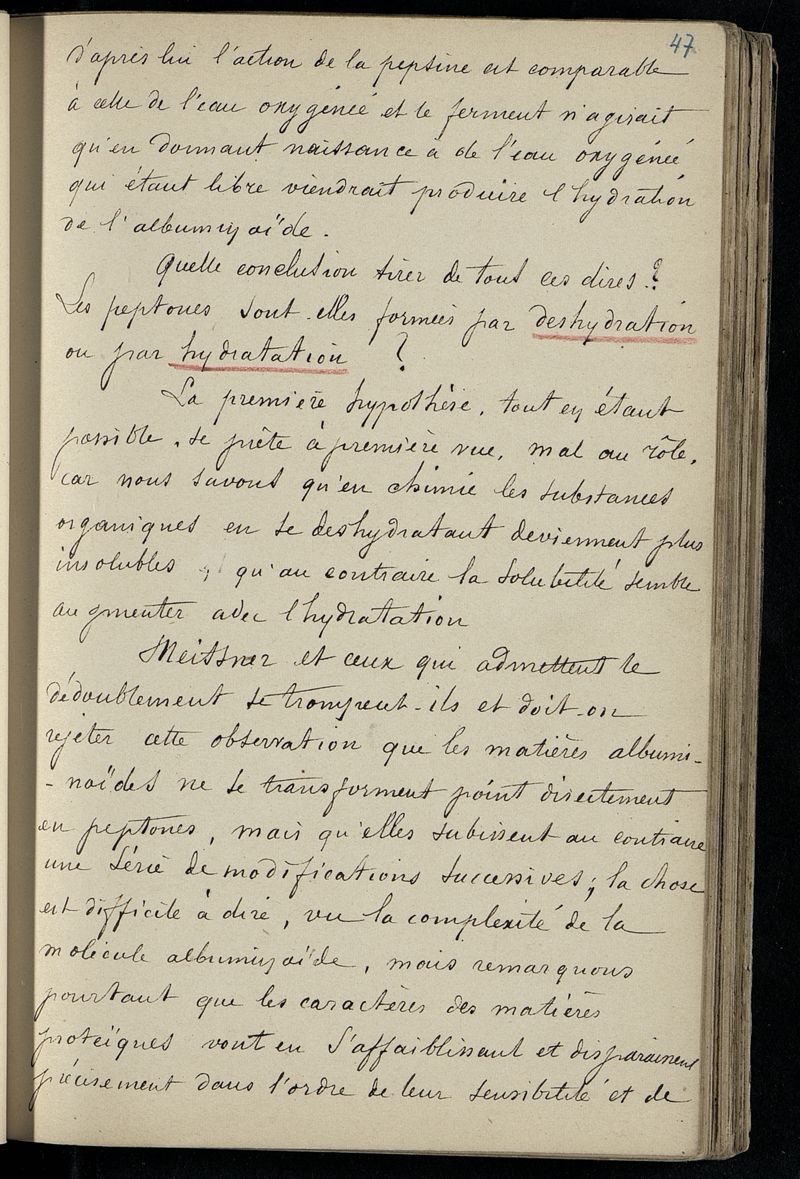 47
d'après lui l'action de la pepsine est comparable
à celle de l'eau oxygénée et le ferment n'agirait
qu'en donnant naissance à de l'eau oxygénée
qui étant libre viendrait produire l'hydration
de l'albuminoïde.
Quelle conclusion tirer de tout ces dires ?
Les peptones sont-elles formées par deshydration
ou par hydratation ?
La première hypothèse, tout en étant
possible, se prête à première vue, mal au rôle,
car nous savons qu'en chimie les substances
organiques en se deshydratant deviennent plus
insolubles, qu'au contraire la solubilité semble
augmenter avec l'hydratation
Meissner et ceux qui admettent le
dédoublement se trompent-ils et doit-on
rejeter cette observation que les matières albumi-
-noïdes ne se transforment point directement
en peptones, mais qu'elles subissent au contraire
une série de modifications successives; la chose
est difficile à dire, vu la complexité de la
molécule albuminoïde, mais remarquons
pourtant que les caractères des matières
proteïques vont en s'affaiblissant et disparaissent
précisement dans l'ordre de leur sensibilité et de